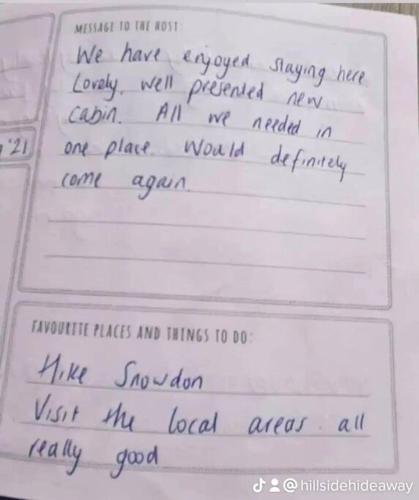 MESSAGE TO THE HOST:
We have enjoyed staying here
Lovely, well presented new
cabin. All we needed in
one place. Would definitely
come again.
'21
FAVOURITE PLACES AND THINGS TO DO:
Hike Snowdon
Visit the local areas. all
really good
@hillsidehideaway